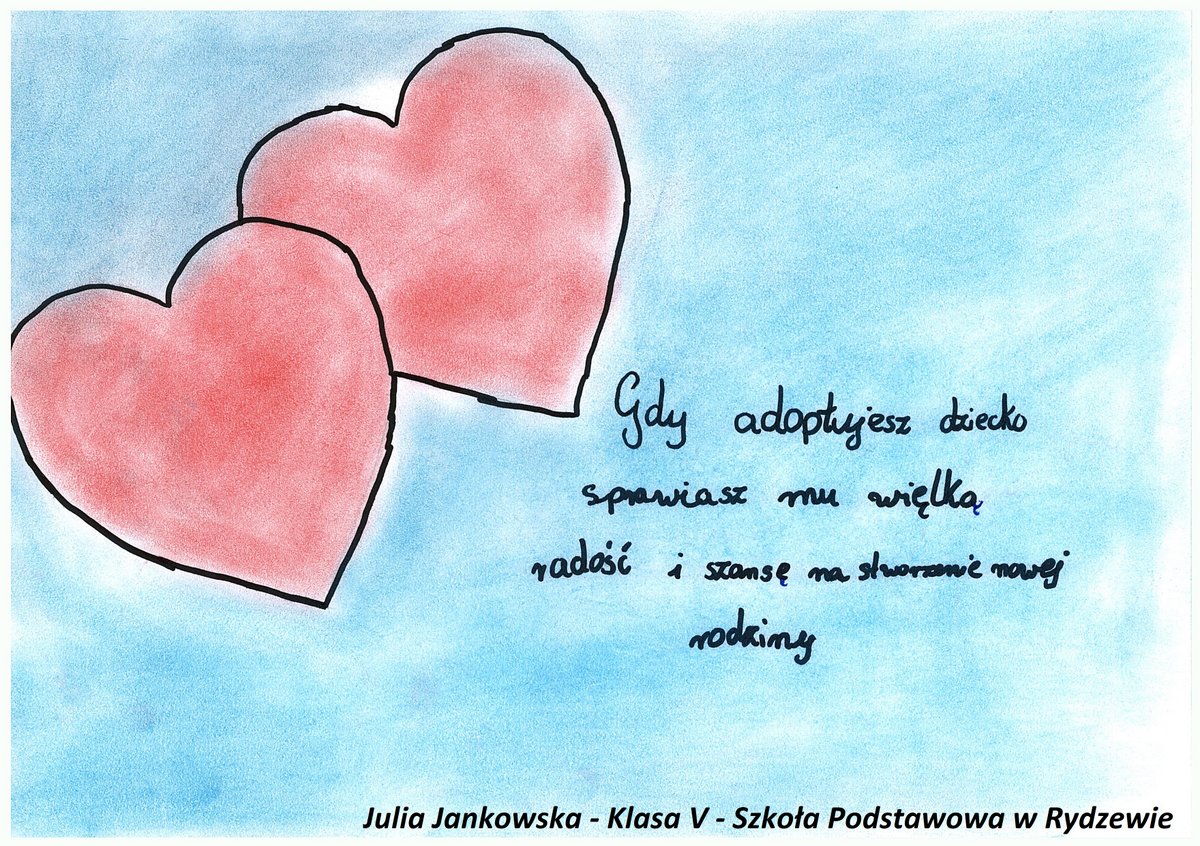 Gdy adoptujesz dziecko
sprawiasz mu więlką
radość i szansę na stworzenie nowej
rodziny
Julia Jankowska - Klasa V - Szkoła Podstawowa w Rydzewie